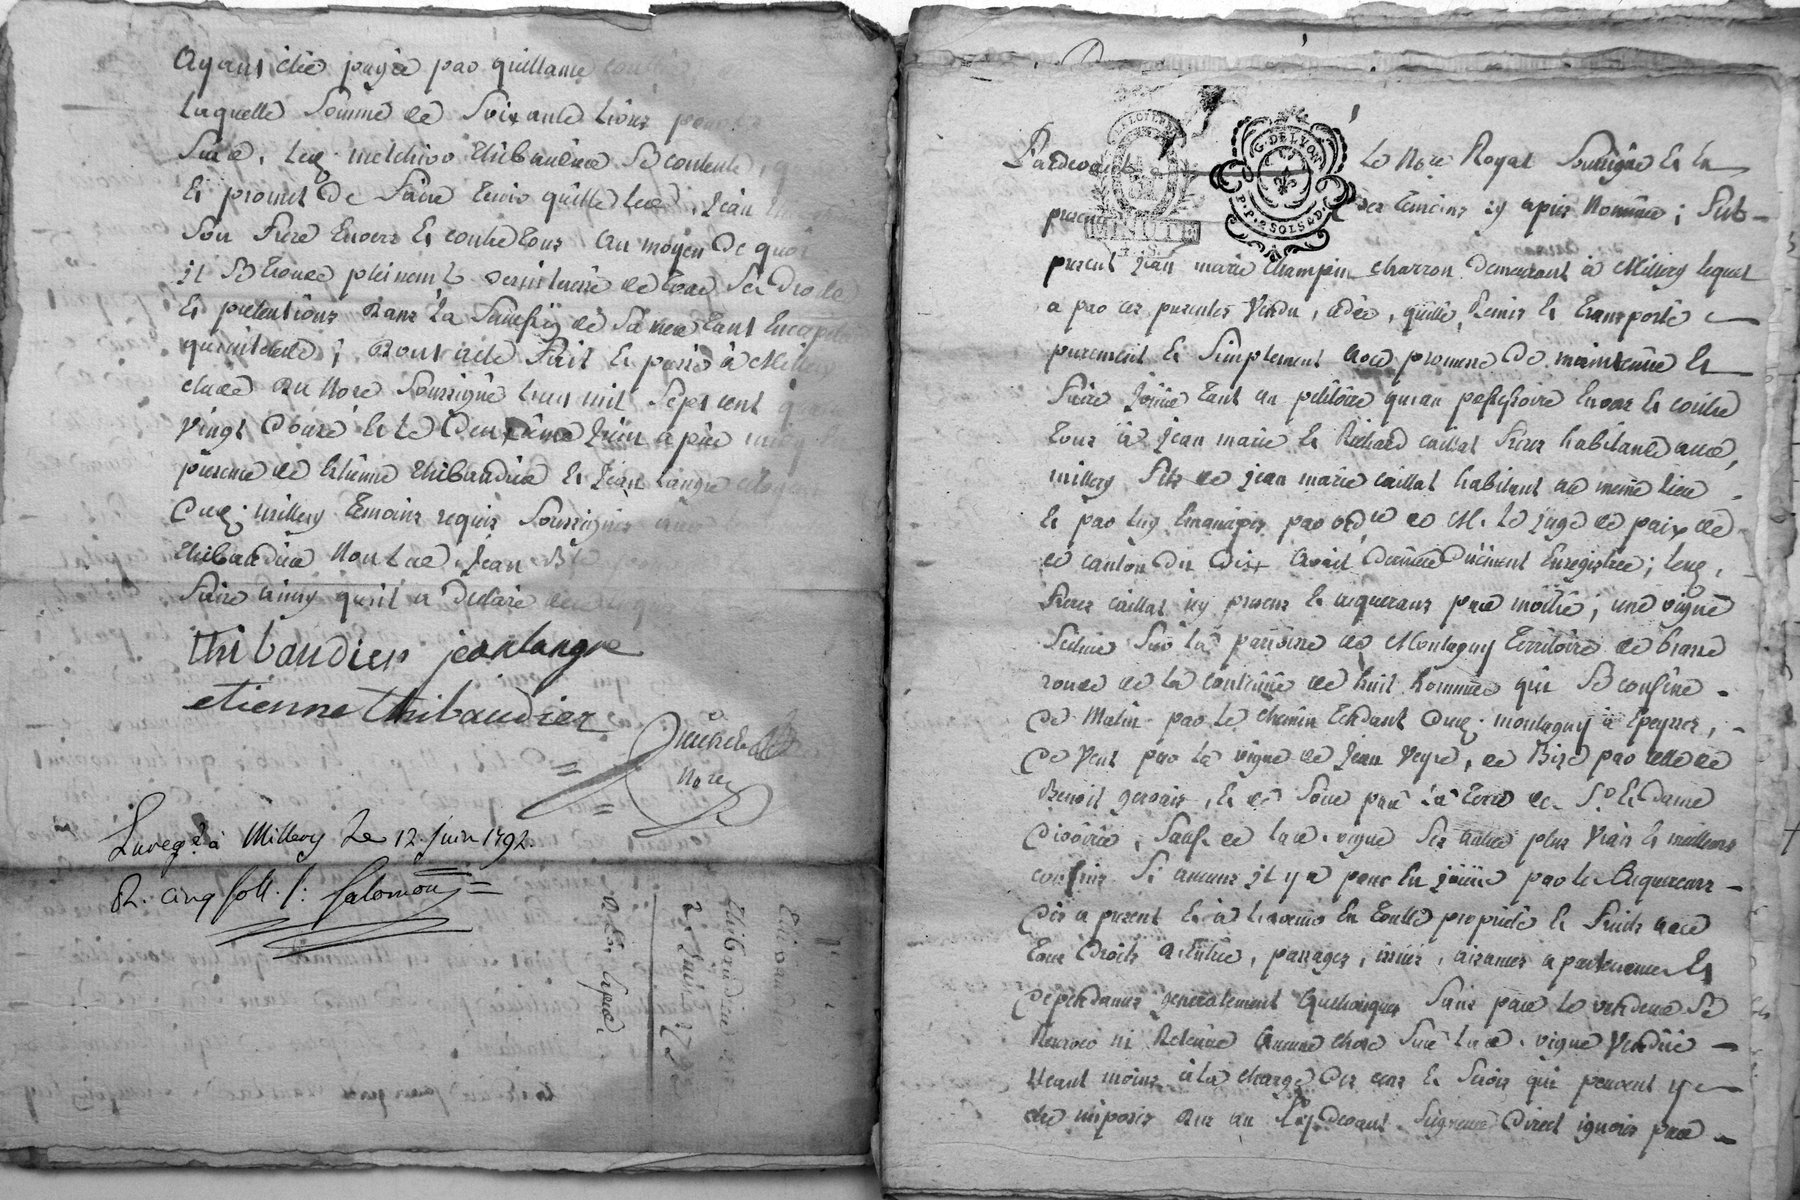 Ayant été payée par guillaume
laquelle somme de soixante livres pour
led. melchior thibaudier se contente,
Et promet de faire tenir quitte led. Jean
son frère Envers Et contre tous au moyen de quoi
il se trouve pleinement de tous ses droits
Et prétentions dans la succession de sa mere tant En capital
qu'intérêts ; dont acte fait Et passé à Millery
Etude du No.re soussigné l'an mil sept cent quatre
vingt douze Et le deuxième Juin après midy
présence de Etienne thibaudier Et Jean Langre citoyens
dud. millery témoins requis soussignés avec
thibaudier non led. Jean
faire ainsy qu'il a déclaré
thibaudier jean langre
etienne thibaudier
No.re
Enreg.é à Millery Le 12. Juin 1792.
R. cinq sols. /: Salomon
Quittance
thibaudier
2. Juin 1792
G. DE LYON
MINUTE
Pardevant Le No.re Royal soussigné Et en
présence des témoins cy après Nommés ; fut
présent Jean marie Champin charron demeurant à Millery lequel
a par ces présentes Vendu, cédé, quitté, Remis Et transporté
purement Et simplement avec promesse de maintenue Et
faire Jouir tant au pétitoire qu'au possessoire Envers Et contre
tous à Jean marie Et Richard caillat freres habitants aud.
millery fils de Jean marie caillat habitant au même lieu
Et par luy émancipés par ord.ce de M. le juge de paix de
ce canton du Dix avril dernier dûment Enregistrée ; led.
freres caillat icy présents Et acquéreurs par moitié, une vigne
située sur la paroisse de Montagny territoire de
de la contenue de huit hommées qui se confine
de Matin par le chemin tendant dud. montagny à Epeysses,
de Vent par la vigne de Jean Veyre, de Bize par celle de
Benoit gervais, Et de soir par la terre de S.r Et dame
sauf de lad. vigne ses autres plus vrais Et meilleurs
confins si aucuns il y a pour En jouir par les Acquéreurs
dès a présent Et à l'avenir En toutte propriété Et fruits avec
tous droits d'entrée, passages, issues, aisances apartenances Et
dépendances généralement quelconques sans par le vendeur se
Réserver ni Retenir Aucune chose sur lad. vigne Vendüe
néant moins à la charge des cens Et servis qui peuvent y
être imposés dus au cy devant seigneur direct ignoré par